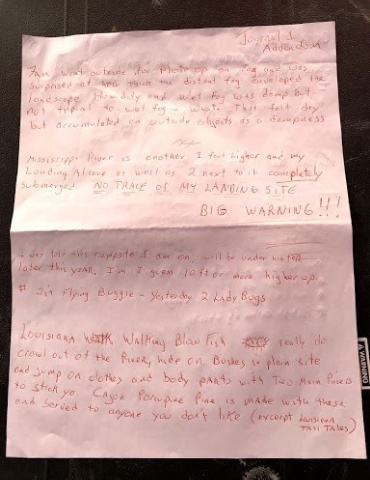 Journal 1
Addendum
7am went outside for photo op on fog and was
surprised at how thick the distant fog enveloped the
landscape. How duly and wet fog was damp but
not typical to wet fog - waste. This felt dry
but accumulated on outside objects as a dampness
Mississippi River is another 1 foot higher and my
Landing Alcove as well as 2 next to it completely
submerged. NO TRACE OF MY LANDING SITE
BIG WARNING!!!
I was told this campsite I am on, will be under water
later this year. I'm I guess 10 ft or more higher up.
# 2 in Flying Buggie - Yesterday 2 Lady Bugs
LOUISIANA Walking Blow Fish really do
crawl out of the River, hide on Bushes in plain site
and jump on clothes and body parts with Two Main
to stick yo. Cajun Porcupine Pine is made with these
and served to anyone you don't like (except Louisiana
Tall Tales)
WARNING